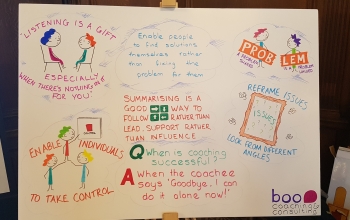 LISTENING IS A GIFT
ESPECIALLY
WHEN THERE'S NOTHING IN IT
FOR YOU.
Enable people
to find solutions
themselves rather
than fixing the
problem for them
PROB
LEM
A PROBLEM
SHARED
IS A PROBLEM
HALVED
SUMMARISING IS A
GOOD WAY TO
FOLLOW RATHER THAN
LEAD. SUPPORT RATHER
THAN INFLUENCE
REFRAME ISSUES
ISSUES
LOOK FROM DIFFERENT
ANGLES
ENABLE INDIVIDUALS
TO TAKE CONTROL
Q When is coaching
successful?
A When the coachee
says 'Goodbye. I can
do it alone now!'
boo
coaching &
consulting